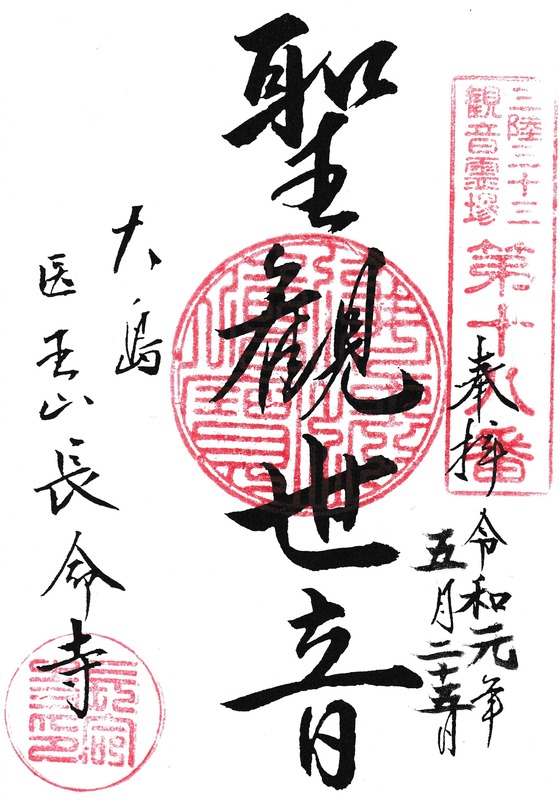 三陸三十三
観音霊場
第十八番
奉拝
令和元年
五月二十五日
聖観世音
大島
医王山長命寺